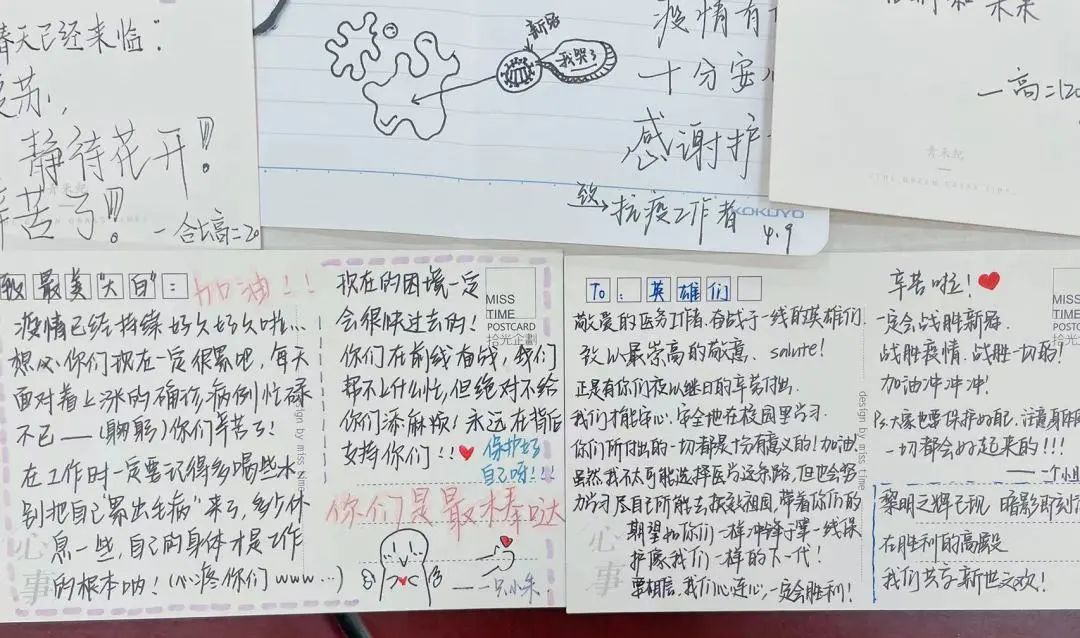 春天已经来临：
复苏，
静待花开!!!
辛苦了!!!
新冠
我哭了
疫情有
十分安
感谢护
致→抗疫工作者
KOKUYO
4.9
青禾纪
致最美"大白"：
加油!!
疫情已经持续好久好久啦...
想必你们现在一定很累吧，每天
面对着上涨的确诊病例忙碌
不已——(鞠躬)你们辛苦了!
在工作时一定要记得多喝些水
别把自己"累出毛病"来了，多少休
息一些，自己的身体才是工作
的根本呐!(心疼你们www...)
心事
现在的困境一定
会很快过去的!
你们在前线奋战，我们
帮不上什么忙，但绝对不给
你们添麻烦!永远在背后
支持你们!!
保护好
自己呀!!!
你们是最棒哒
——一只小朱
MISS
TIME
POSTCARD
拾光企劃
design by miss time
To：英雄们
敬爱的医务工作者，奋战于一线的英雄们.
致以最崇高的敬意、salute!
正是有你们夜以继日的辛苦付出.
我们才能安心、安全地在校园里学习.
你们所付出的一切都是十分有意义的!加油!
虽然我不太可能选择医学这条路，但也会努
力学习尽自己所能去报效祖国，带着你们的
期望和你们一样冲锋于第一线保
护像我们一样的下一代!
要相信，我们心连心，一定会胜利!
心事
MISS
TIME
POSTCARD
拾光企劃
design by miss time
辛苦啦!
一定会战胜新冠.
战胜疫情、战胜一切的!
加油冲冲冲!
Ps:大家也要保护好自己，注意身体
一切都会好起来的!!!
——一个小
黎明之辉已现 暗影即刻
在胜利的高殿
我们共享新世之欢!